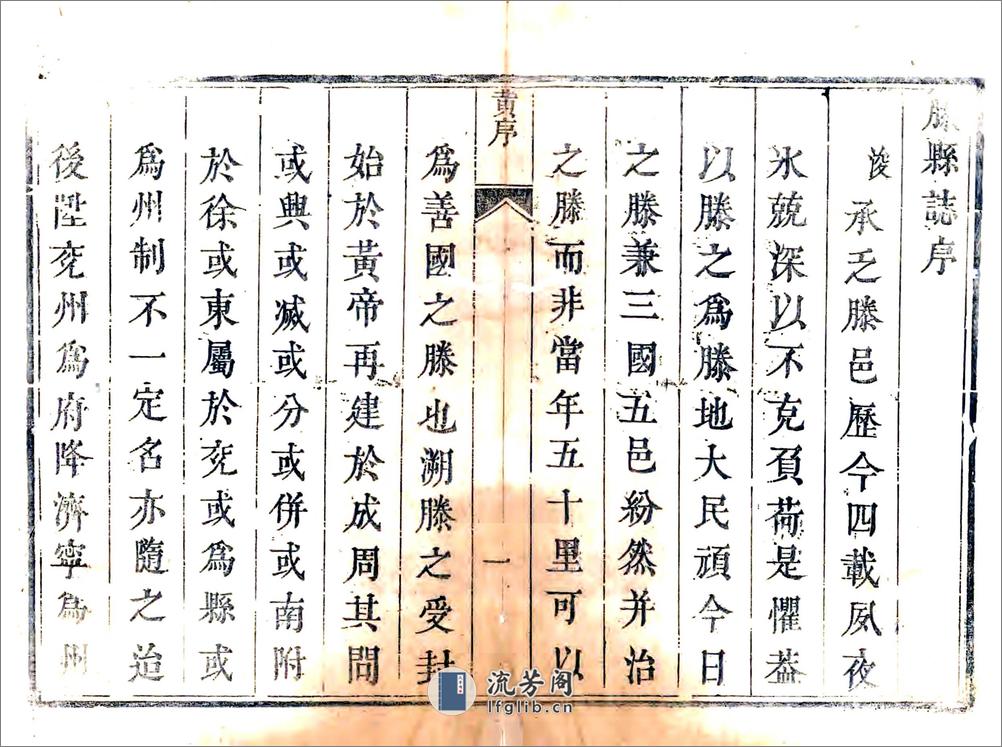 滕縣誌序
浚承乏滕邑歷今四載夙夜
氷兢深以不克負荷是懼葢
以滕之爲滕地大民頑今日
之滕兼三國五邑紛然并治
之滕而非當年五十里可以
黄序 一
爲善國之滕也溯滕之受封
始於黃帝再建於成周其間
或興或滅或分或併或南附
於徐或東屬於兖或爲縣或
爲州制不一定名亦隨之迨
後陞兖州爲府降濟寧爲州
流芳阁
lfglib.cn